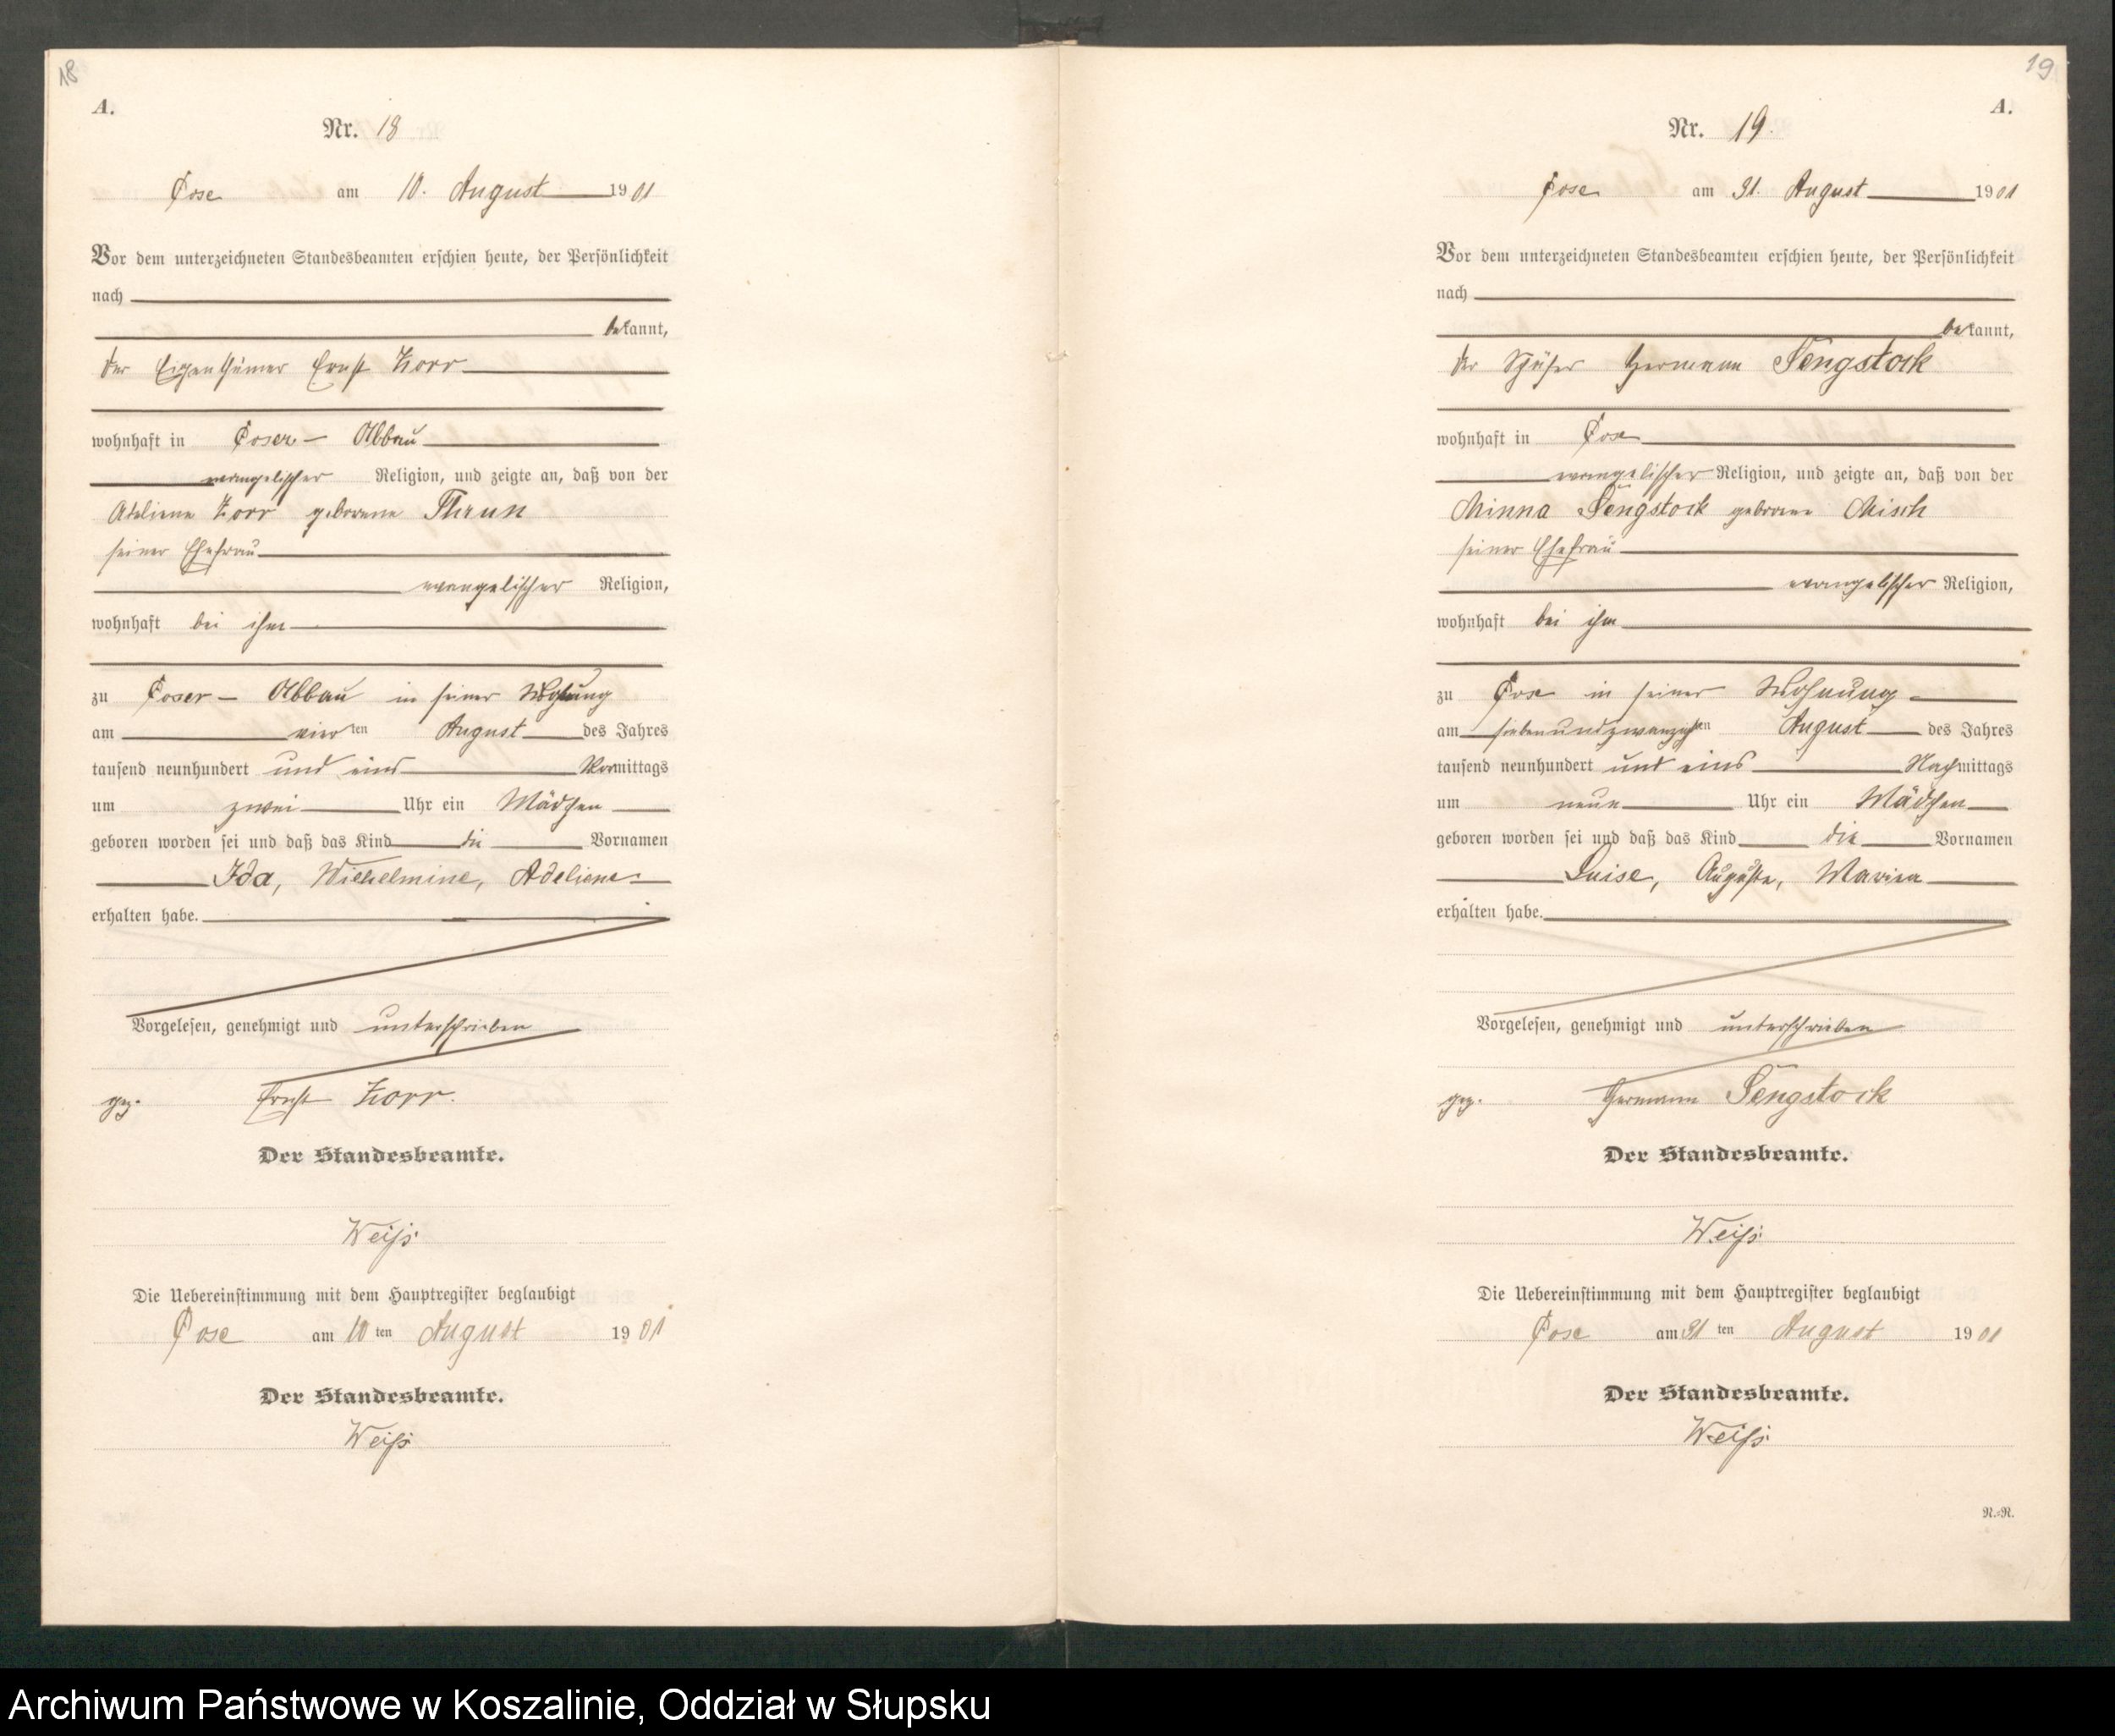 18
A.
Nr. 18
Cose am 10. August 1901
Vor dem unterzeichneten Standesbeamten erschien heute, der Persönlichkeit
nach
bekannt,
der Eigenthümer Ernst Korr
wohnhaft in Coser - Abbau
evangelischer Religion, und zeigte an, daß von der
Adeliene Korr geborene Thrun
seiner Ehefrau
evangelischer Religion,
wohnhaft bei ihm
zu Coser - Abbau in seiner Wohnung
am vierten August des Jahres
tausend neunhundert und eins Vormittags
um zwei Uhr ein Mädchen
geboren worden sei und daß das Kind die Vornamen
Ida, Wilhelmine, Adeliene
erhalten habe.
Vorgelesen, genehmigt und unterschrieben
gez. Ernst Korr.
Der Standesbeamte.
Weiß
Die Uebereinstimmung mit dem Hauptregister beglaubigt
Cose am 10 ten August 1901
Der Standesbeamte.
Weiß
19
A.
Nr. 19.
Cose am 31. August 1901
Vor dem unterzeichneten Standesbeamten erschien heute, der Persönlichkeit
nach
bekannt,
der Schäfer Hermann Sengstock
wohnhaft in Cose
evangelischer Religion, und zeigte an, daß von der
Minna Sengstock geborene Misch
seiner Ehefrau
evangelischer Religion,
wohnhaft bei ihm
zu Cose in seiner Wohnung
am siebenundzwanzigsten August des Jahres
tausend neunhundert und eins Nachmittags
um neun Uhr ein Mädchen
geboren worden sei und daß das Kind die Vornamen
Luise, Auguste, Marien
erhalten habe.
Vorgelesen, genehmigt und unterschrieben
gez. Hermann Sengstock
Der Standesbeamte.
Weiß
Die Uebereinstimmung mit dem Hauptregister beglaubigt
Cose am 31 ten August 1901
Der Standesbeamte.
Weiß
N.=N.
Archiwum Państwowe w Koszalinie, Oddział w Słupsku